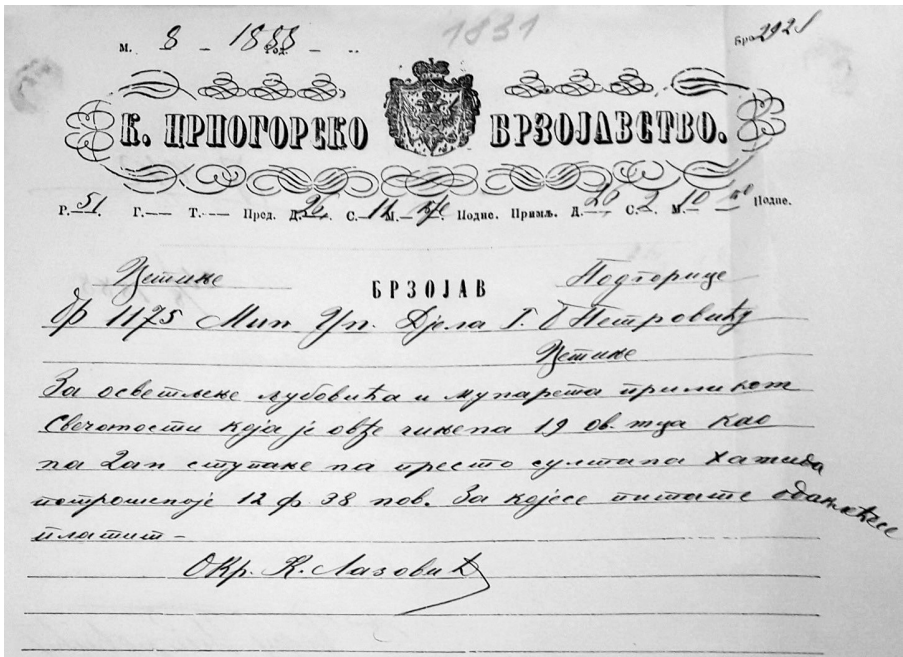 М. 8 - 1888 год. - ..
1831
Број 2921
К. ЦРНОГОРСКО БРЗОЈАВСТВО.
Р. 51. Г.-- Т.-- Пред. Д. 26. С. 11 М. Подне. Примљ. Д. 26 С. 2 М. 10 Подне.
Цетиње БРЗОЈАВ Подгорице
Бр 1175 Мин. Ун. Дјела Г. Б Петровићу
Цетиње
За осветљење Љубовића и мунарета приликом
Свечаности која је овђе чињена 19 ов. мца као
на дан ступање на престо султана Хамида
потрошеноје 12 ф 38 нов. За којесе питате одакљећесе
платит -
Окр. К. Лазовић